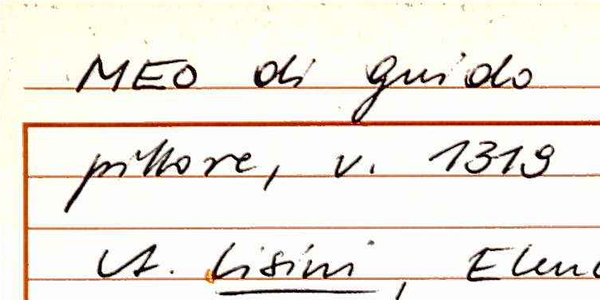 MEO di guido
pittore, v. 1319
A. Lisini, Elen